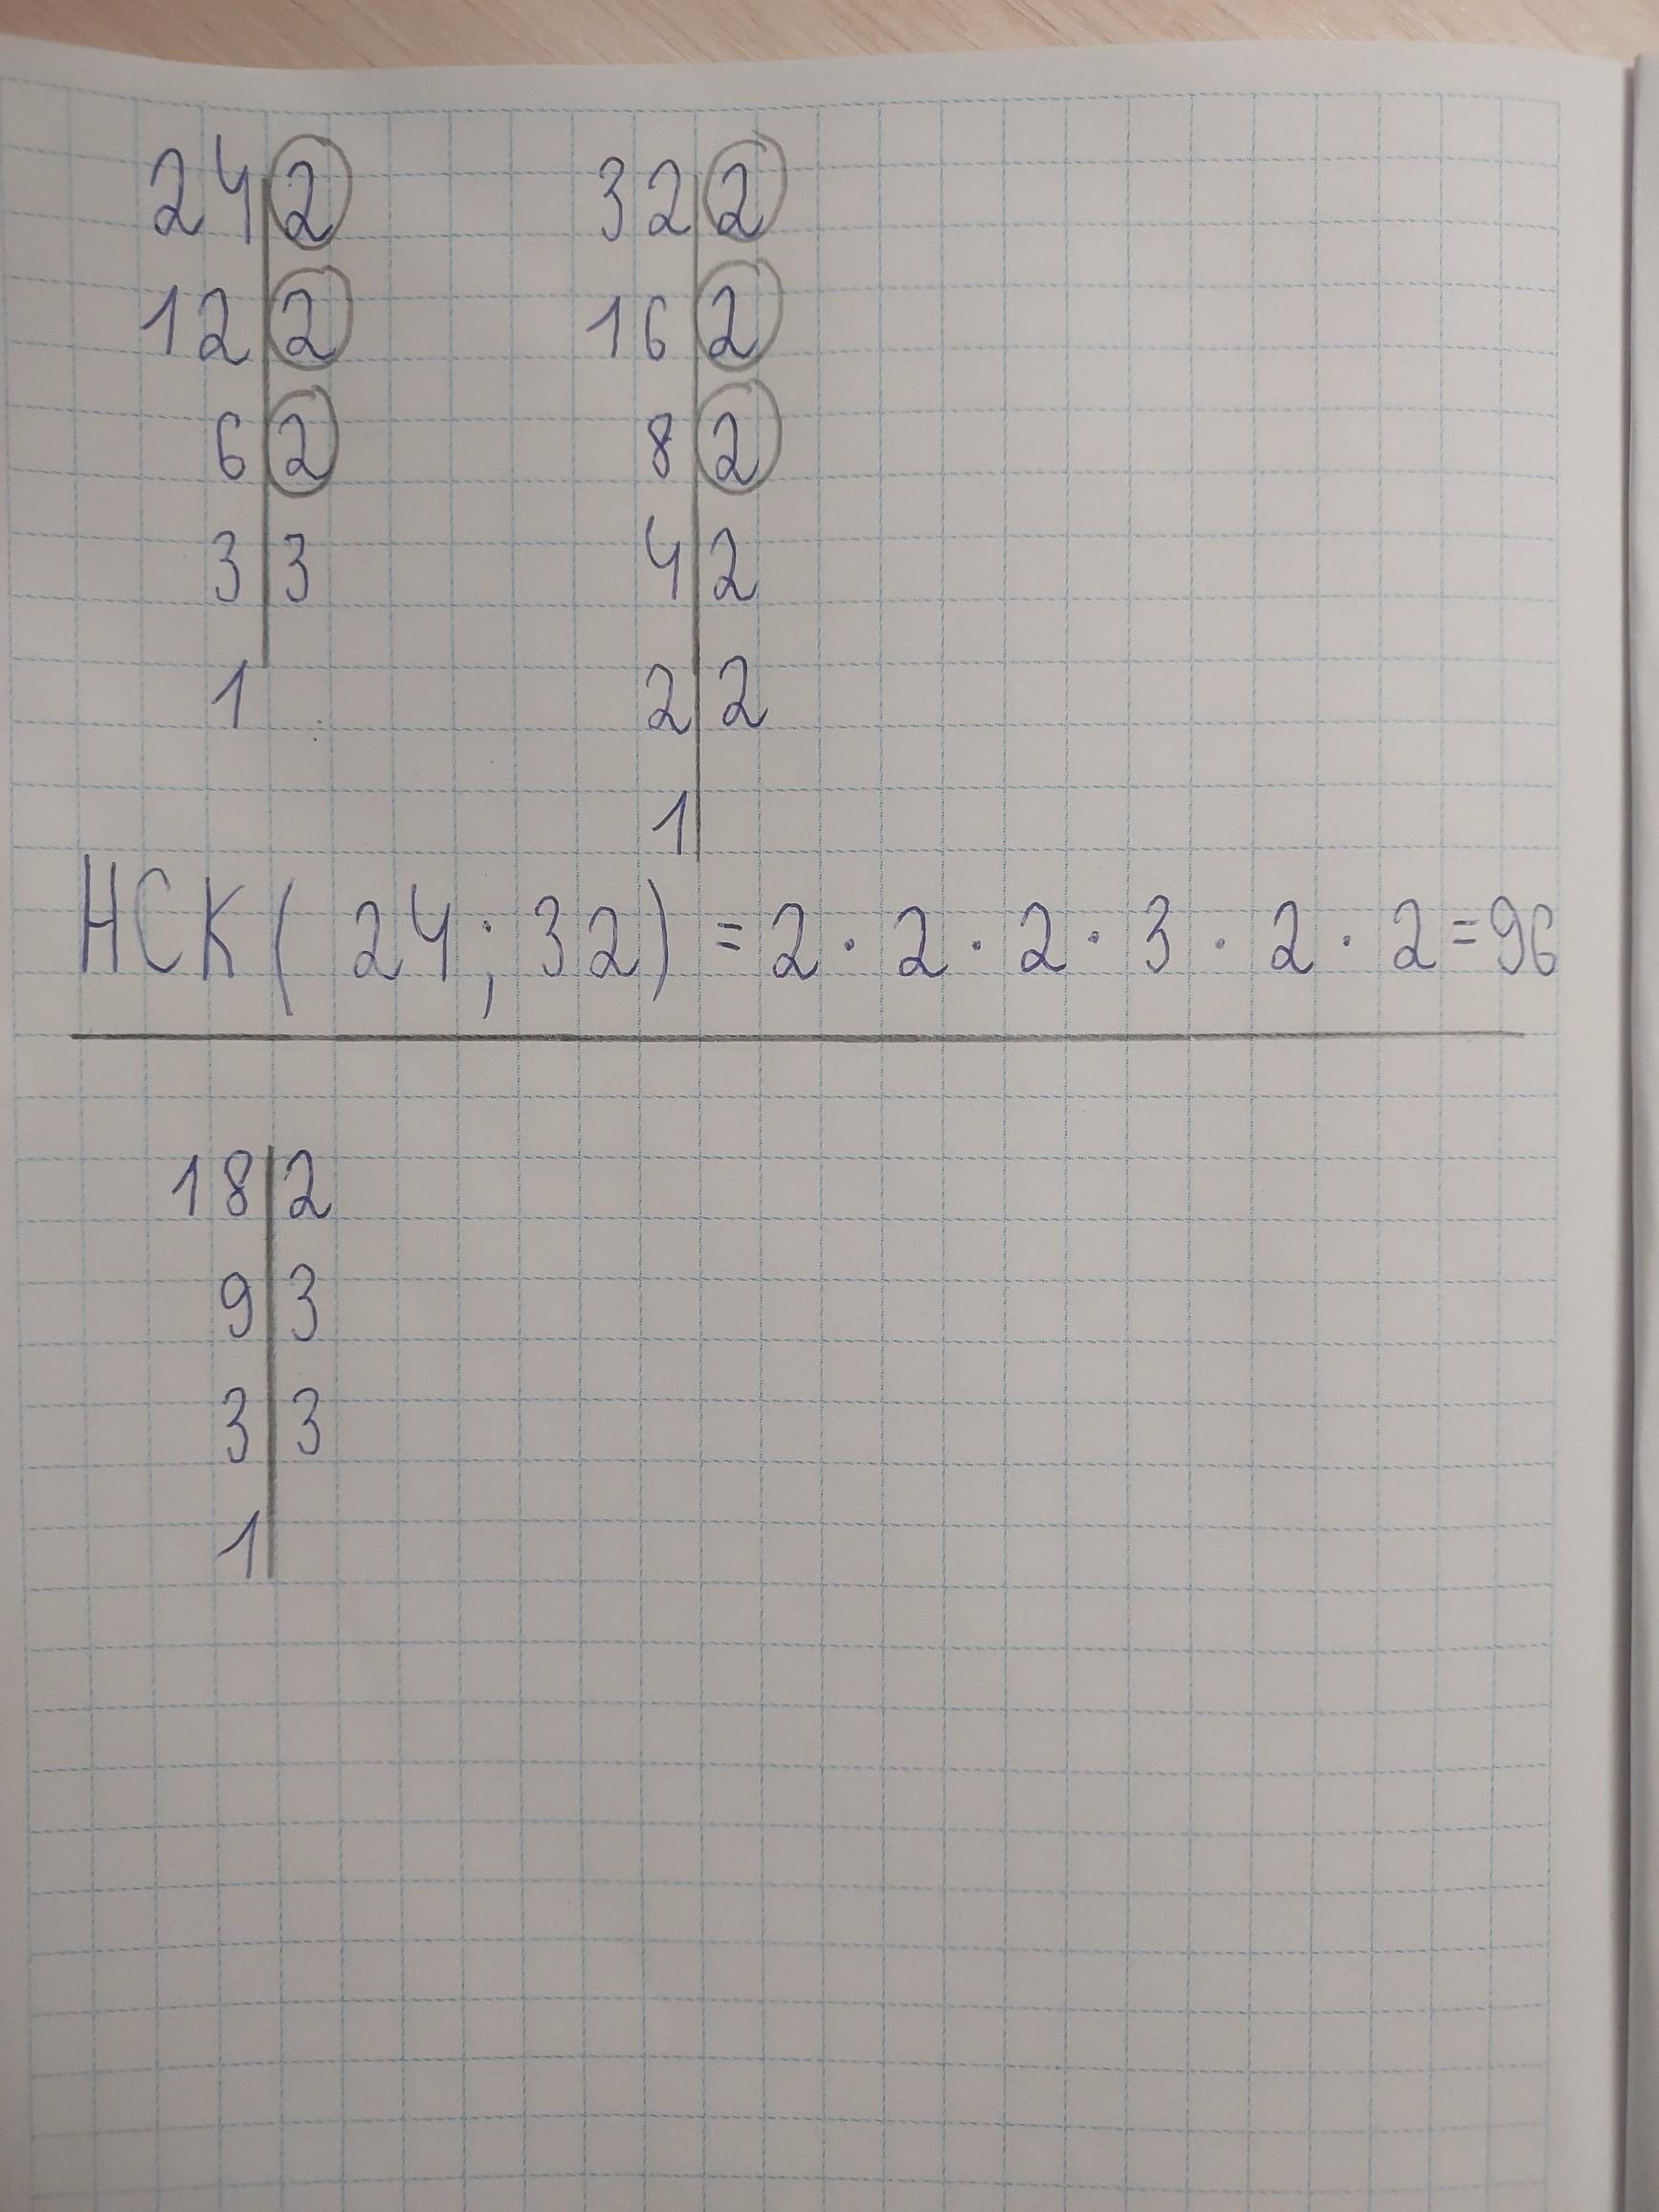 24|2 32|2
12|2 16|2
6|2 8|2
3|3 4|2
1 2|2
1|
НСК( 24; 32) = 2 · 2 · 2 · 3 · 2 · 2 = 96
18|2
9|3
3|3
1|